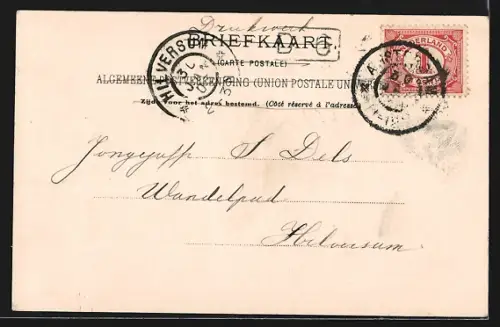 Drukwerk
BRIEFKAART.
(CARTE POSTALE)
ALGEMEENE POSTVEREENIGING (UNION POSTALE UNIVERSELLE)
Zijde voor het adres bestemd. (Côté réservé à l'adresse)
HILVERSUM
NEDERLAND
1
Jongejuff S Dels
Wandelpad
Hilversum